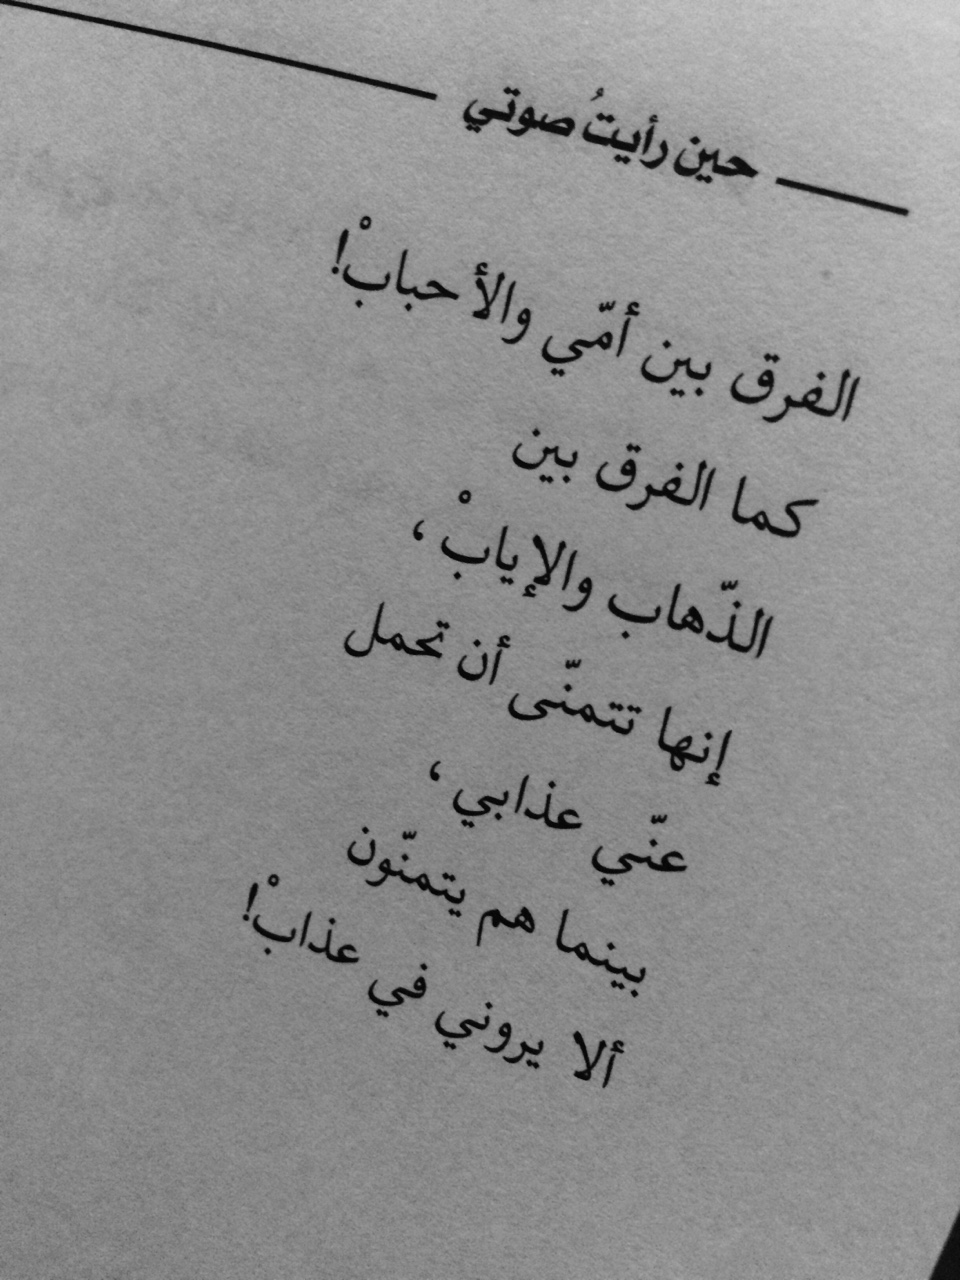 حين رأيتُ صوتي
الفرق بين أمّي والأحبابْ!
كما الفرق بين
الذّهاب والإيابْ،
إنها تتمنّى أن تحمل
عنّي عذابي،
بينما هم يتمنّون
ألا يروني في عذابْ!